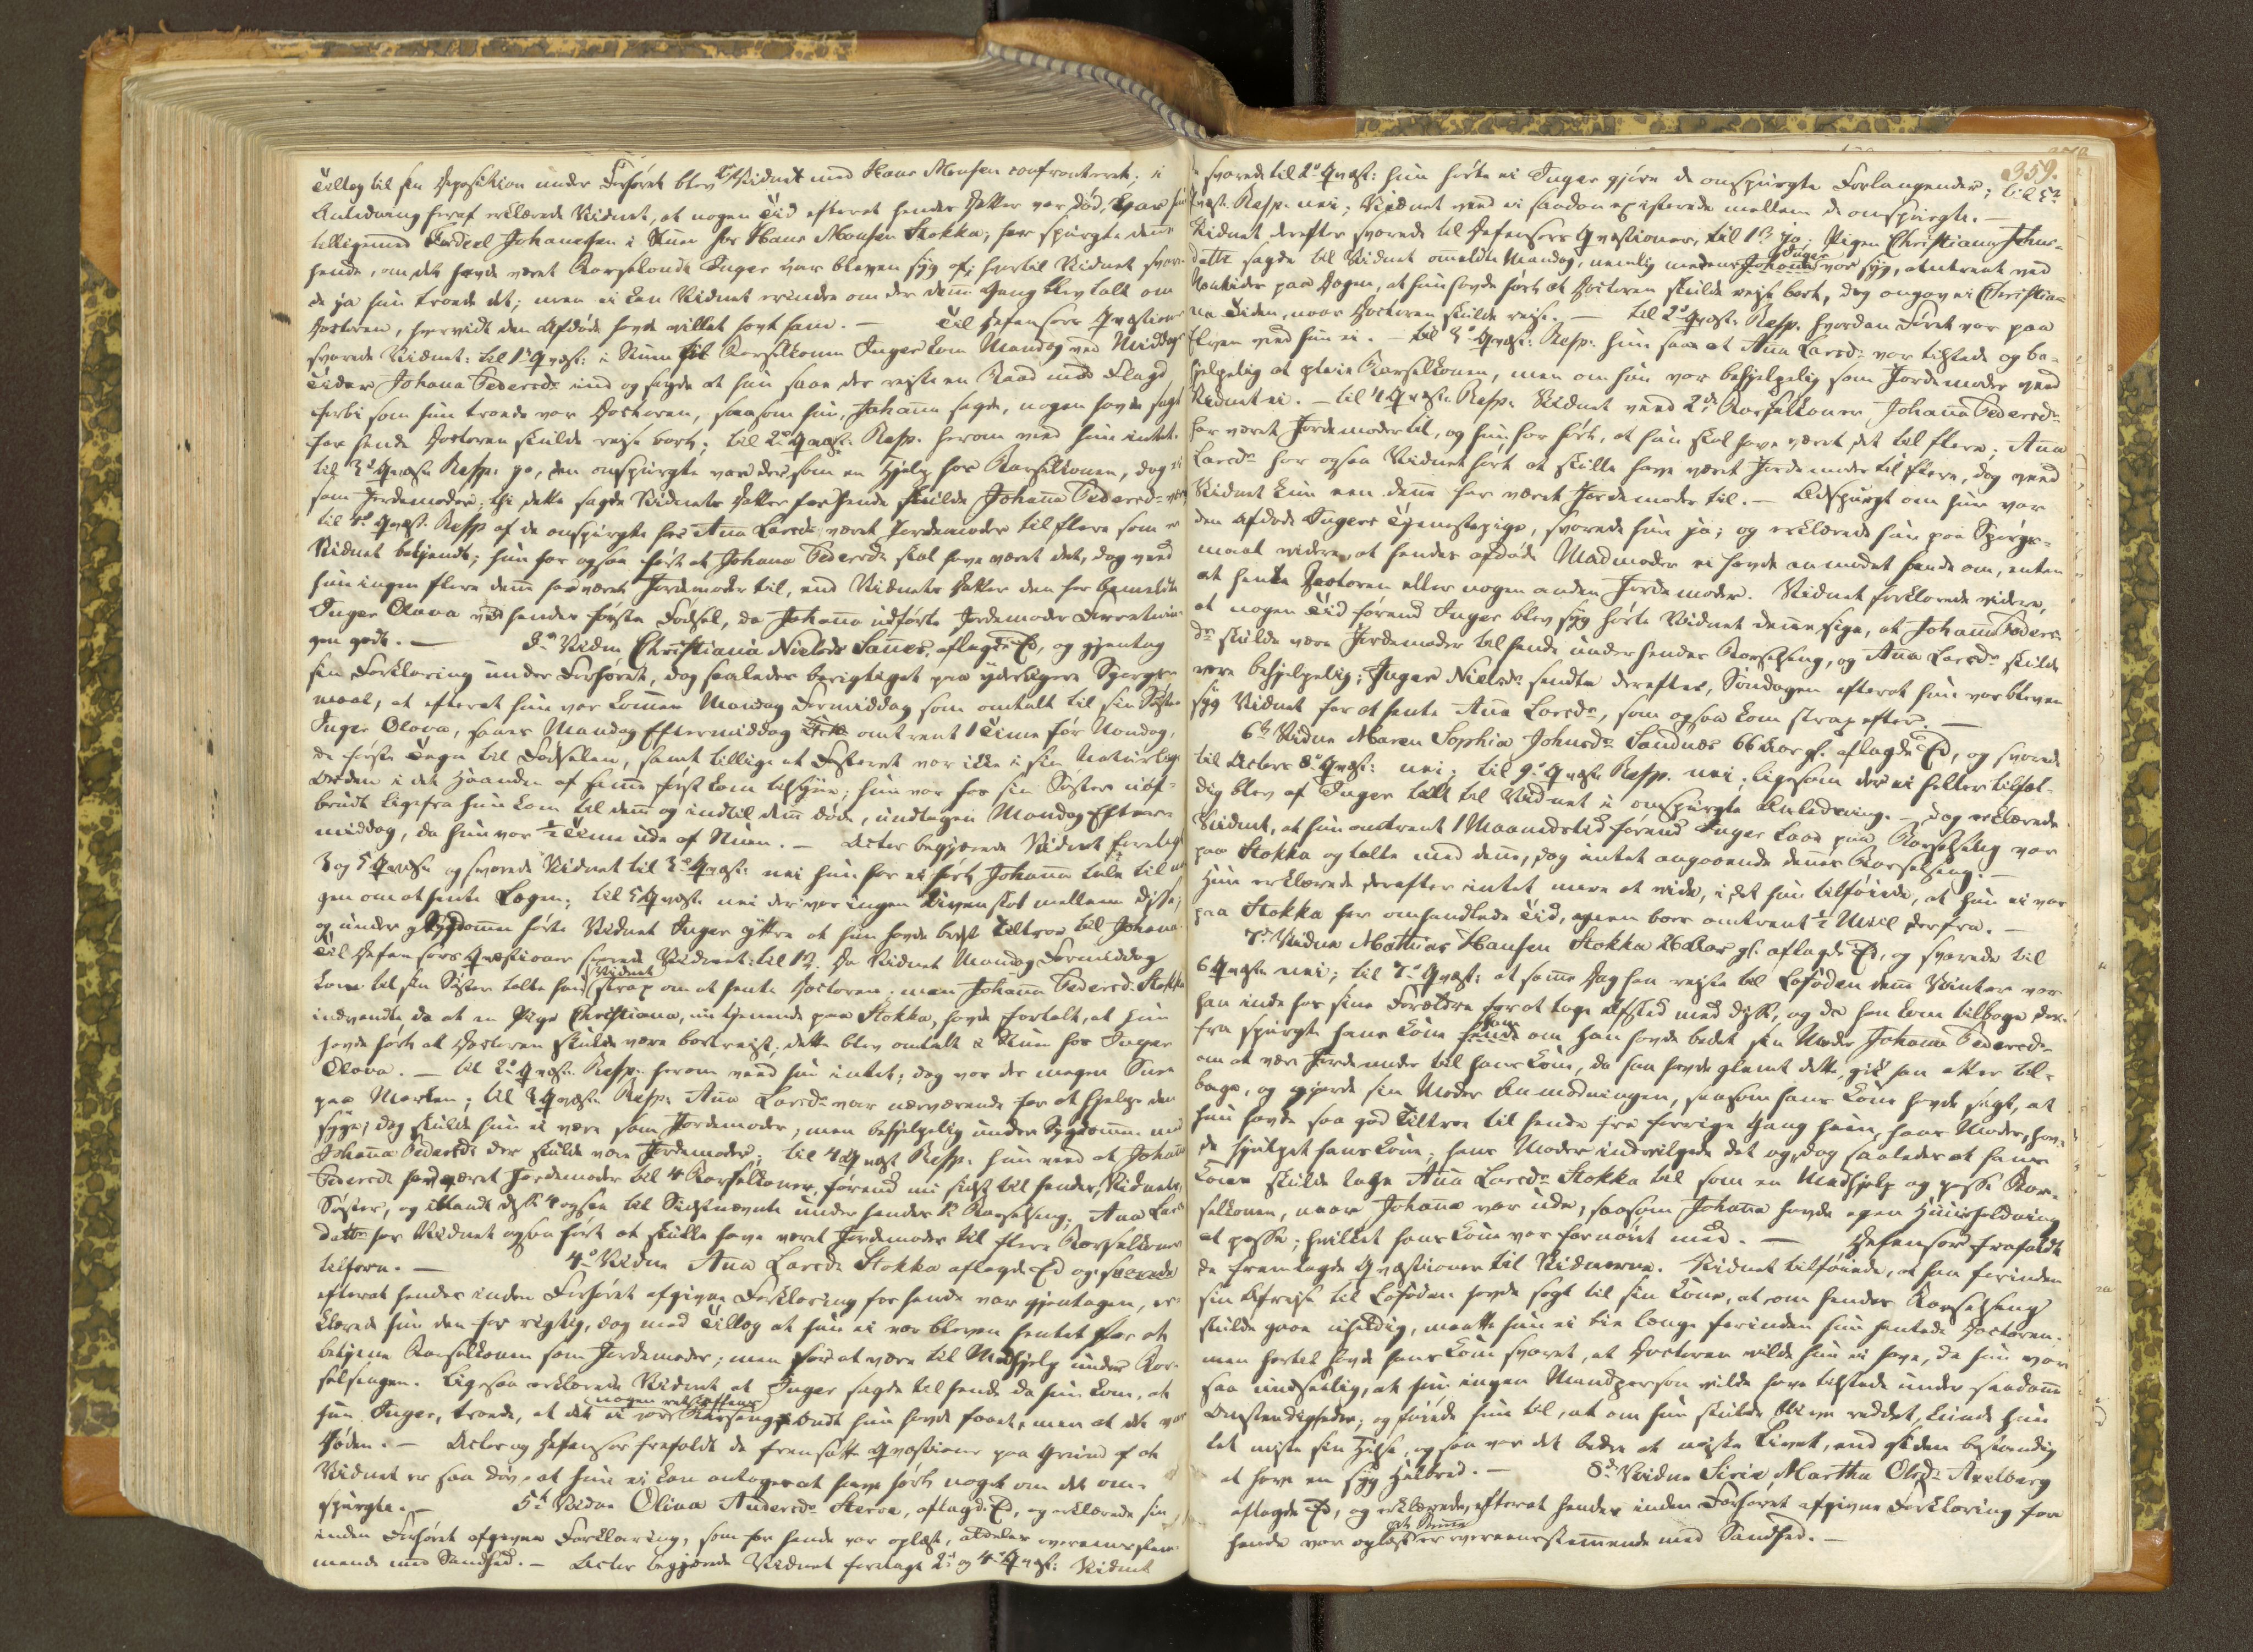 Tillæg til sin Deposition under Forhøret blev Vidnet med Hans Monsen confronteret; i
Anledning heraf erklærede Vidnet, at nogen Tid efterat hendes Datter var død, var hun
tilligemed Johannesen i Stuen hos Hans Monsen Stokka; her spurgte denne
hende, om det havde været Barselondt Inger var bleven syg af, hvortil Vidnet svare-
de ja hun troede det; men ei kan Vidnet erindre om der denne Gang blev talt om
Doctoren, hvorvidt den Afdøde havde villet havt ham. — Til Defensors Qvæstioner
svarede Vidnet: til 1ste Qvæst: i Stuen til Barselkonen Inger kom Mandag ved Middags
Tider Johanna Pedersdr ind og sagde at hun saae der reiste en Baad med Flag
forbi som hun troede var Doctoren, saasom hun, Johanna sagde, nogen havde sagt
for hende Doctoren skulde reise bort; til 2d Qvæst: Resp. herom veed hun intet.
til 3d Qvæst: Resp: ja, den omspurgte var der som en Hjelp hos Barselkonen, dog ei
som Jordemoder; thi dette sagde Vidnets Datter for hende skulde Johanna Pedersdr være
til 4d Qvæst. Resp af de omspurgte har Anna Larsdr været Jordemoder til flere som er
Vidnet bekjendt; hun har ogsaa hørt at Johanna Pedersdr skal have været det, dog veed
hun ingen flere denne har været Jordemoder til, end Vidnets Datter den her bemeldte
Inger Olava ved hendes første Fødsel, da Johanna udførte Jordemoder Forretnin-
gen godt. — 3d Vidne Christiana Nielsdr Sannes, aflagde Ed, og gjentog
sin Forklaring under Forhøret, dog saaledes berigtiget paa yderligere Spørgs-
maal, at efterat hun var kommen Mandag Formiddag som omtalt til sin Søster
Inger Olava, saaes Mandag Eftermiddag omtrent 1 Time før Nondag,
de første Tegn til Fødselen, samt tillige at Fosteret var ikke i sin naturlige
Orden i det Haanden af samme først kom tilsyne; hun var hos sin Søster uaf-
brudt ligefra hun kom til denne og indtil denne døde, undtagen Mandag Efter-
middag, da hun var ½ Time ude af Stuen. — Actor begjærede Vidnet forelagt
3 og 5 Qvæst: og svarede Vidnet til 3d Qvæst: nei hun har ei hørt Johanna tale til no-
gen om at hente Lægen; til 5 Qvæst: nei der var ingen Uvenskab mellem disse;
og under Sygdommen hørte Vidnet Inger yttre at hun havde bedst Tiltroe til Johanna
Til Defensors Qvæstioner svarede Vidnet: til 1ste. Da Vidnet Mandag Formiddag
kom til sin Søster talte hun Vidnet strax om at hente Doctoren; men Johanna Pedersd. Stokka
indvendte da at en Pige Christiana, nu tjenende paa Stokka, havde fortalt, at hun
havde hørt at Doctoren skulde være bortreist; dette blev omtalt i Stuen hos Inger
Olava. — til 2d Qvæst. Resp: herom veed hun intet; dog var der megen Snee
paa Marken; til 3 Qvæst: Resp: Anna Larsdr var nærværende for at hjelpe den
syge; dog skulde hun ei være som Jordemoder, men behjelpelig under Sygdommen med
Johanna Pedersdr der skulde være Jordemoder; til 4 Qvæst Resp. hun veed at Johanna
Pedersdr har været Jordemoder til 4 Barselkoner, førend nu sidst til hendes, Vidnets,
Søster, og iblandt disse 4 ogsaa til Sidstnævnte under hendes Barselseng; Anna Lars-
datter har Vidnet ogsaa hørt at skulle have været Jordemoder til flere Barselkoner
tilforn. — 4d Vidne Anna Larsdr Stokka aflagde Ed og svarede
efterat hendes inden Forhøret afgivne Forklaring for hende var gjentagen, er-
klærede hun den for rigtig, dog med Tillæg at hun ei var bleven hentet for at
betjene Barselkonen som Jordemoder; men for at være til Medhjelp under Bar-
selsengen. Ligesaa erklærede Vidnet at Inger sagde til hende da hun kom, at
hun Inger, troede, at det ei var nogen Barsengsondt hun havde faaet, men at det var
Døden. — Actor og Defensor frafaldt de fremsatte Qvæstioner paa Grund af at
Vidnet er saa døv, at hun ei kan antages at have hørt noget om det om-
spurgte. — 5te Vidne Olina Andersdr Sterva, aflagde Ed, og erklærede sin
inden Forhøret afgivne Forklaring, som for hende var oplæst, aldeles overeensstem-
mende med Sandhed. — Actor begjærede Vidnet forelagt 2d og 4d Qvæst: Vidnet
359.
svarede til 2d Qvæst: hun hørte ei Inger gjøre de omspurgte Forlangender; til 5te
Qvæst. Resp. nei; Vidnet veed ei saadan existerede mellem de omspurgte. —
Vidnet derefter svarede til Defensors Qvæstioner, til 1ste ja; Pigen Christiana Johns-
datter sagde til Vidnet ommeldte Mandag, nemlig medens Johanna Inger var syg, omtrent ved
Nontider paa Dagen, at hun havde hørt at Doctoren skulde reise bort, dog angav ei Christia-
na Tiden, naar Doctoren skulde reise. — til 2d Qvæst: Resp. hvordan Føret var paa
Elven veed hun ei. — til 3d Qvæst: Resp: hun saae at Anna Larsdr var tilstede og be-
hjelpelig at pleie Barselkonen, men om hun var behjelpelig som Jordemoder veed
Vidnet ei. — til 4 Qvæst: Resp: Vidnet veed 2de Barselkoner Johanna Pedersdr
har været Jordemoder til, og hun har hørt, at hun skal have været det til flere; Anna
Larsdr har ogsaa Vidnet hørt at skulle have været Jordemoder til flere, dog veed
Vidnet kun een denne har været Jordemoder til. — Adspurgt om hun var
den afdøde Ingers Tjenestepige, svarede hun ja; og erklærede hun paa Spørgs-
maal videre, at hendes afdøde Madmoder ei havde anmodet hende om, enten
at hente Doctoren eller nogen anden Jordemoder. Vidnet forklarede videre,
at nogen Tid førend Inger blev syg hørte Vidnet denne sige, at Johanna Peders-
dr skulde være Jordemoder til hende under hendes Barselseng, og Anna Larsdr skulde
være behjelpelig; Inger Nielsdr sendte derefter, Søndagen efterat hun var bleven
syg Vidnet for at hente Anna Larsdr, som ogsaa kom strax efter. —
6te Vidne Maren Sophia Johnsdr Sandnes 66 Aar gl. aflagde Ed, og svarede
til Actors 8d Qvæst: nei; til 9d Qvæst: Resp. nei; ligesom der ei heller tilfæl-
dig blev af Inger talt til Vidnet i omspurgte Anledning. — Dog erklærede
Vidnet, at hun omtrent 1 Maanedstid førend Inger laae paa Barselseng var
paa Stokka og talte med denne, dog intet angaaende dennes Barselseng. —
Hun erklærede derefter intet mere at vide, i det hun tilføiede, at hun ei var
paa Stokka her omhandlede Tid, men boer omtrent ½ Miil derfra. —
7d Vidne Mathias Hansen Stokka 26 Aar gl. aflagde Ed, og svarede til
6 Qvæst: nei; til 7d Qvæst: at samme Dag han reiste til Lofoden denne Vinter var
han inde hos sine Forældre for at tage Afsked med disse, og da han kom tilbage der-
fra spurgte hans Kone ham om han havde bedet sin Moder Johanna Pedersdr
om at være Jordemoder til hans Kone, da han havde glemt dette, gik han atter til-
bage, og gjorde sin Moder Anmodningen, saasom hans Kone havde sagt, at
hun havde saa god Tiltroe til hende fra forrige Gang hun, hans Moder, hav-
de hjulpet hans Kone; hans Moder indvilgede det og, dog saaledes at hans
Kone skulde tage Anna Larsdr Stokka til som en Medhjelp og passe Bar-
selkonen, naar Johanna var ude, saasom Johanna havde egen Huusholdning
at passe; hvilket hans Kone var fornøiet med. — Defensor frafaldt
de fremlagte Qvæstioner til Vidnerne. Vidnet tilføiede, at han forinden
sin Afreise til Lofoden havde sagt til sin Kone, at om hendes Barselseng
skulde gaae uheldig, maatte hun ei bie længe forinden hun hentede Doctoren;
men hertil havde hans Kone svaret, at Doctoren vilde hun ei have, da hun var
saa undseelig, at hun ingen Mandsperson vilde have tilstede under saadanne
Omstændigheder; og føiede hun til, at om hun skulde blive reddet, kunde hun
let miste sin Helse, og saa var det bedre at miste Livet, end siden bestandig
at have en syg Helbred. — 8d Vidne Siria Martha Olsdr Axelberg
aflagde Ed, og erklærede, efterat hendes inden Forhøret afgivne Forklaring for
hende var oplæst at denne er overeensstemmende med Sandhed. —